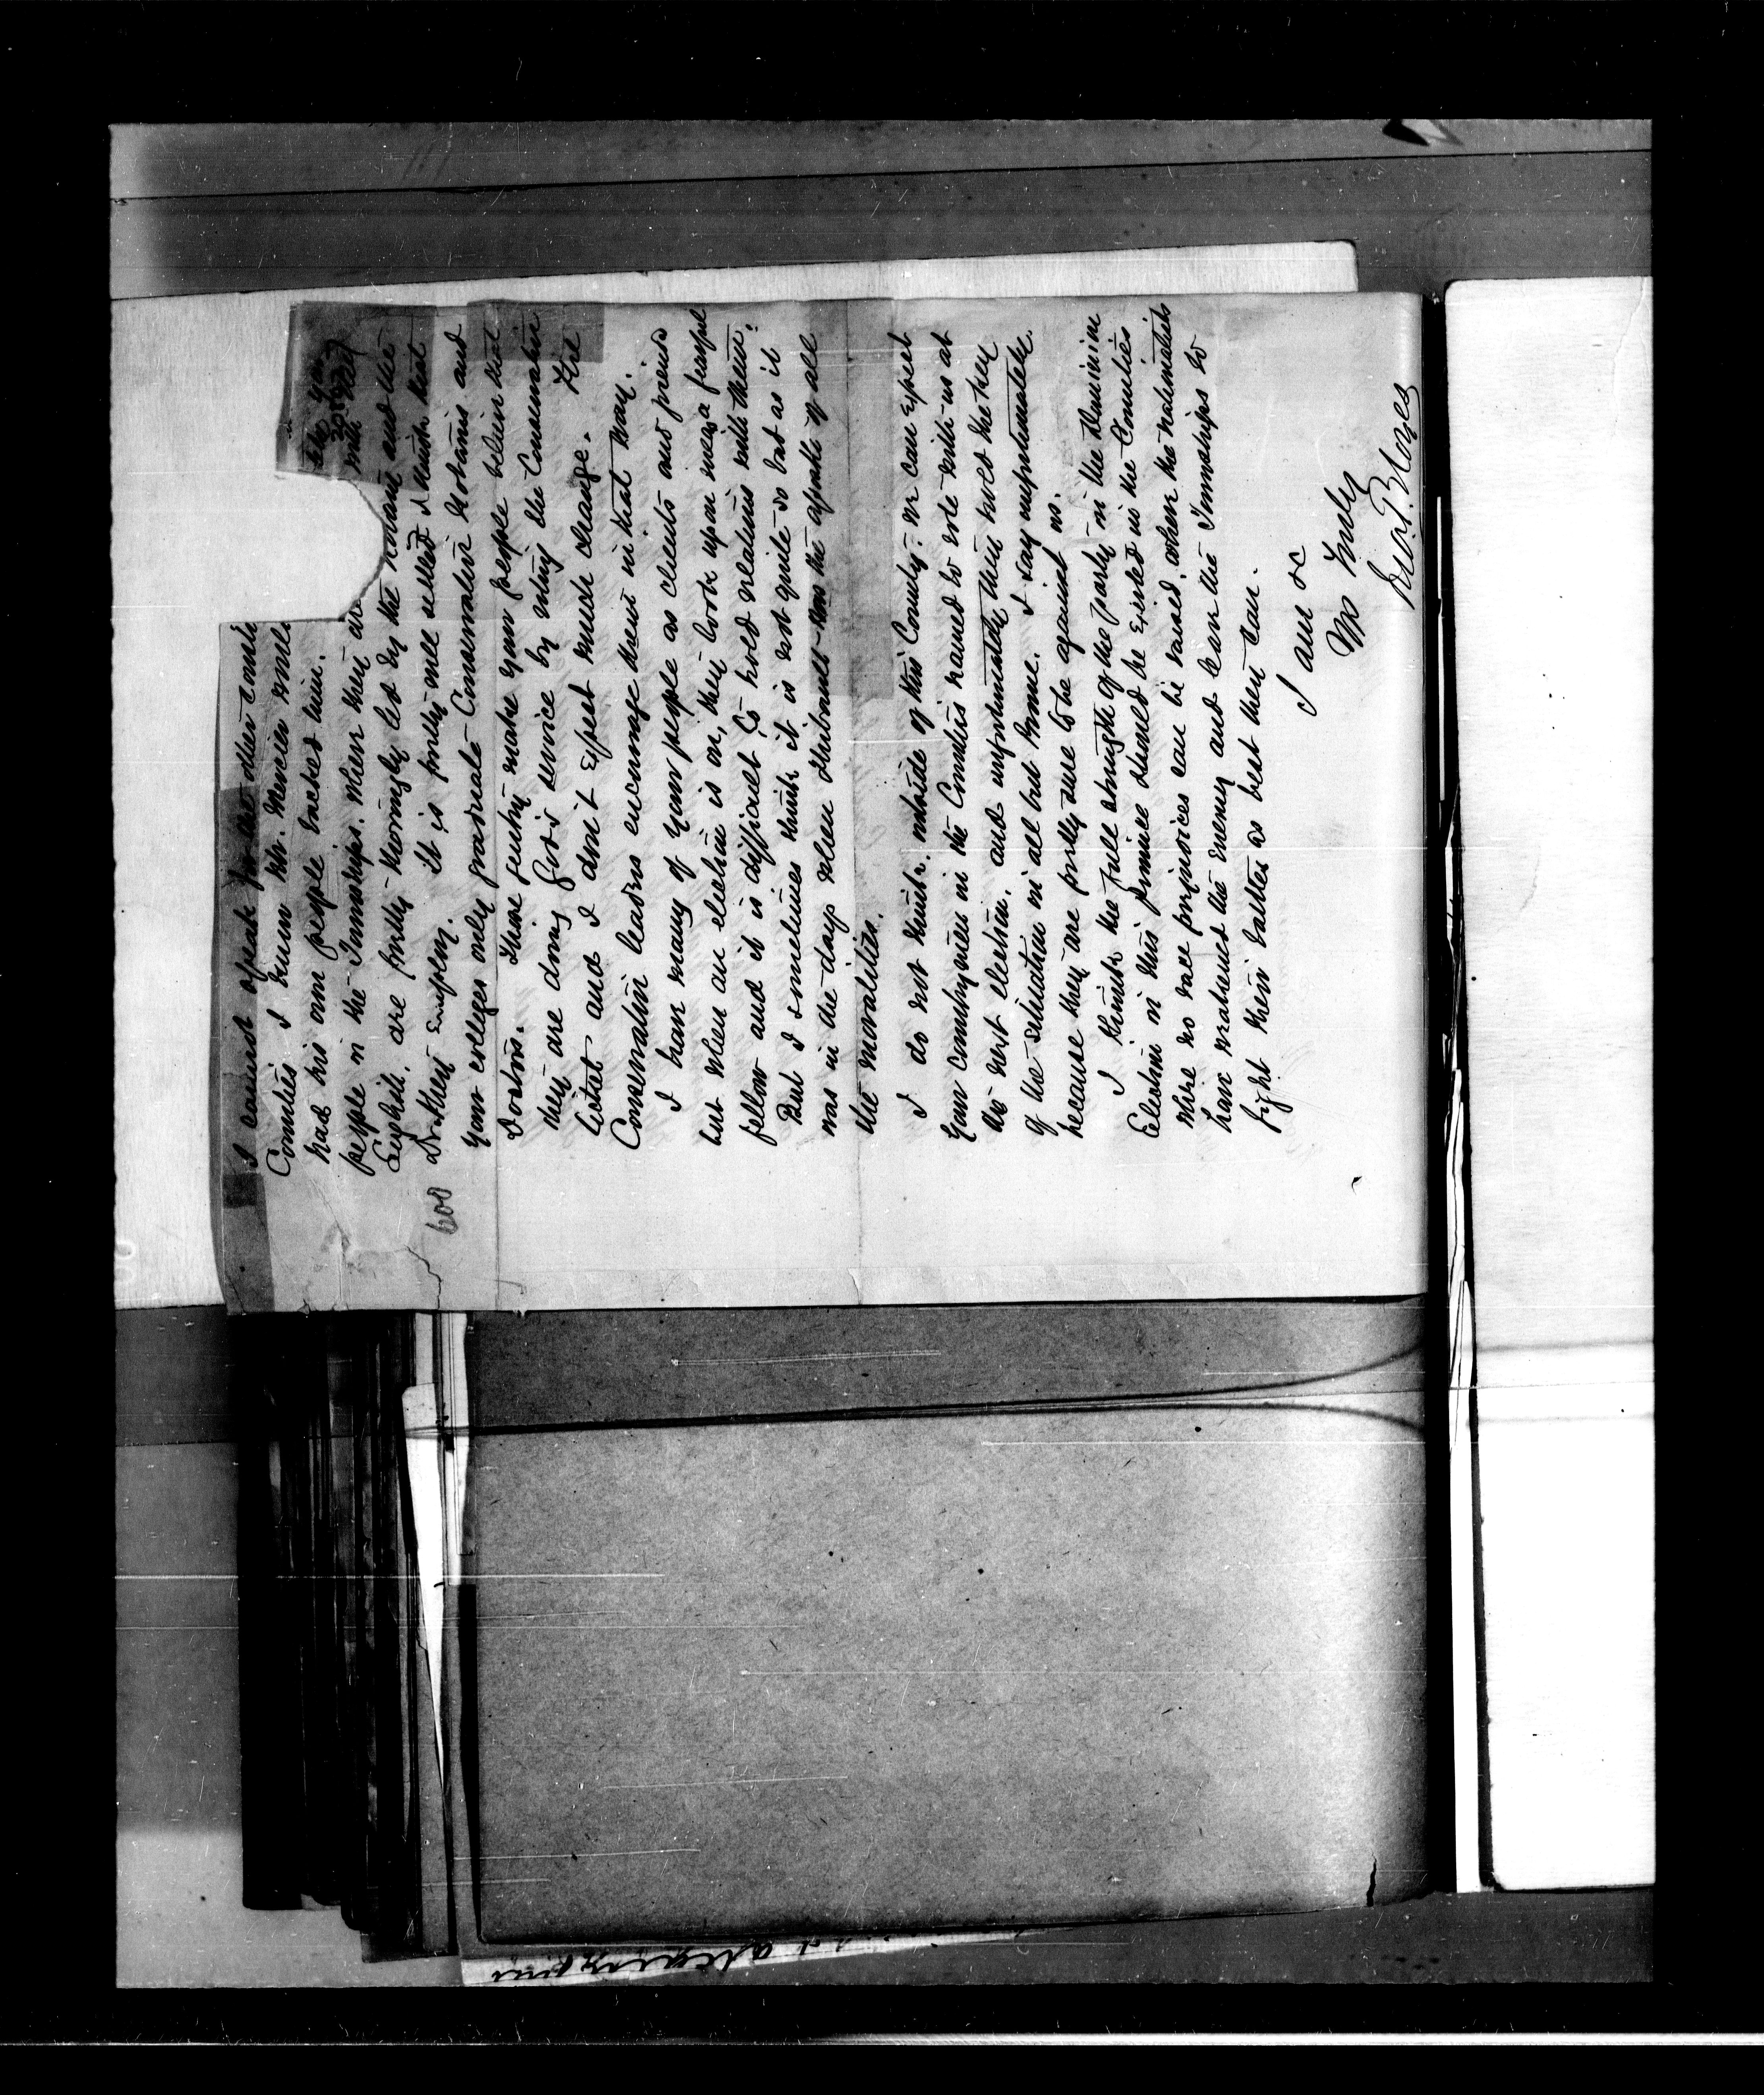 I cannot speak for the other Comti
Counties I know Mr. Mercier
had his own people backed him. like you
people in the Townships. where they are with their
English. are pretty thoroughly led by the and the
Brothers it is pretty well settled I think that
600
your colleges only graduate Conservative Notaries and
Doctors. These gentry make your people believe that
they are doing God's service by voting the Conservative
ticket and I don't expect much change. The
Conservative leaders encourage them in that way.
I have many of your people as clients and friends
but when an election is on, they look upon me as a fearful
fellow and it is difficult to hold relations with them.
But I sometimes think it is not quite so bad as it
was in the days when was the apostle of all
the moralities.
I do not think, outside of this County, we can expect
your countrymen in the Counties named to vote with us at
the next election. and unfortunately they hold the key
of the situation in all but Brome. I say unfortunately
because they are pretty sure to be against us.
I think the full strength of the party in the Dominion
Elections in this province should be exerted in the Counties
where no race prejudices can be raised, when the
have weakened the enemy and leave the Townships to
fight their battles as best they can.
I am &c
Yrs truly
Geo. P.